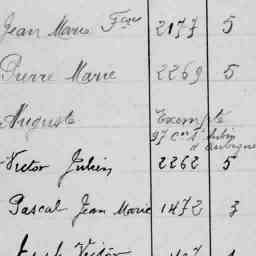 Jean Marie Fçois 2177 5
Pierre Marie 2269 5
Auguste Exempté
Victor Julien 2262 5
Pascal Jean Marie 1472 3
Victor